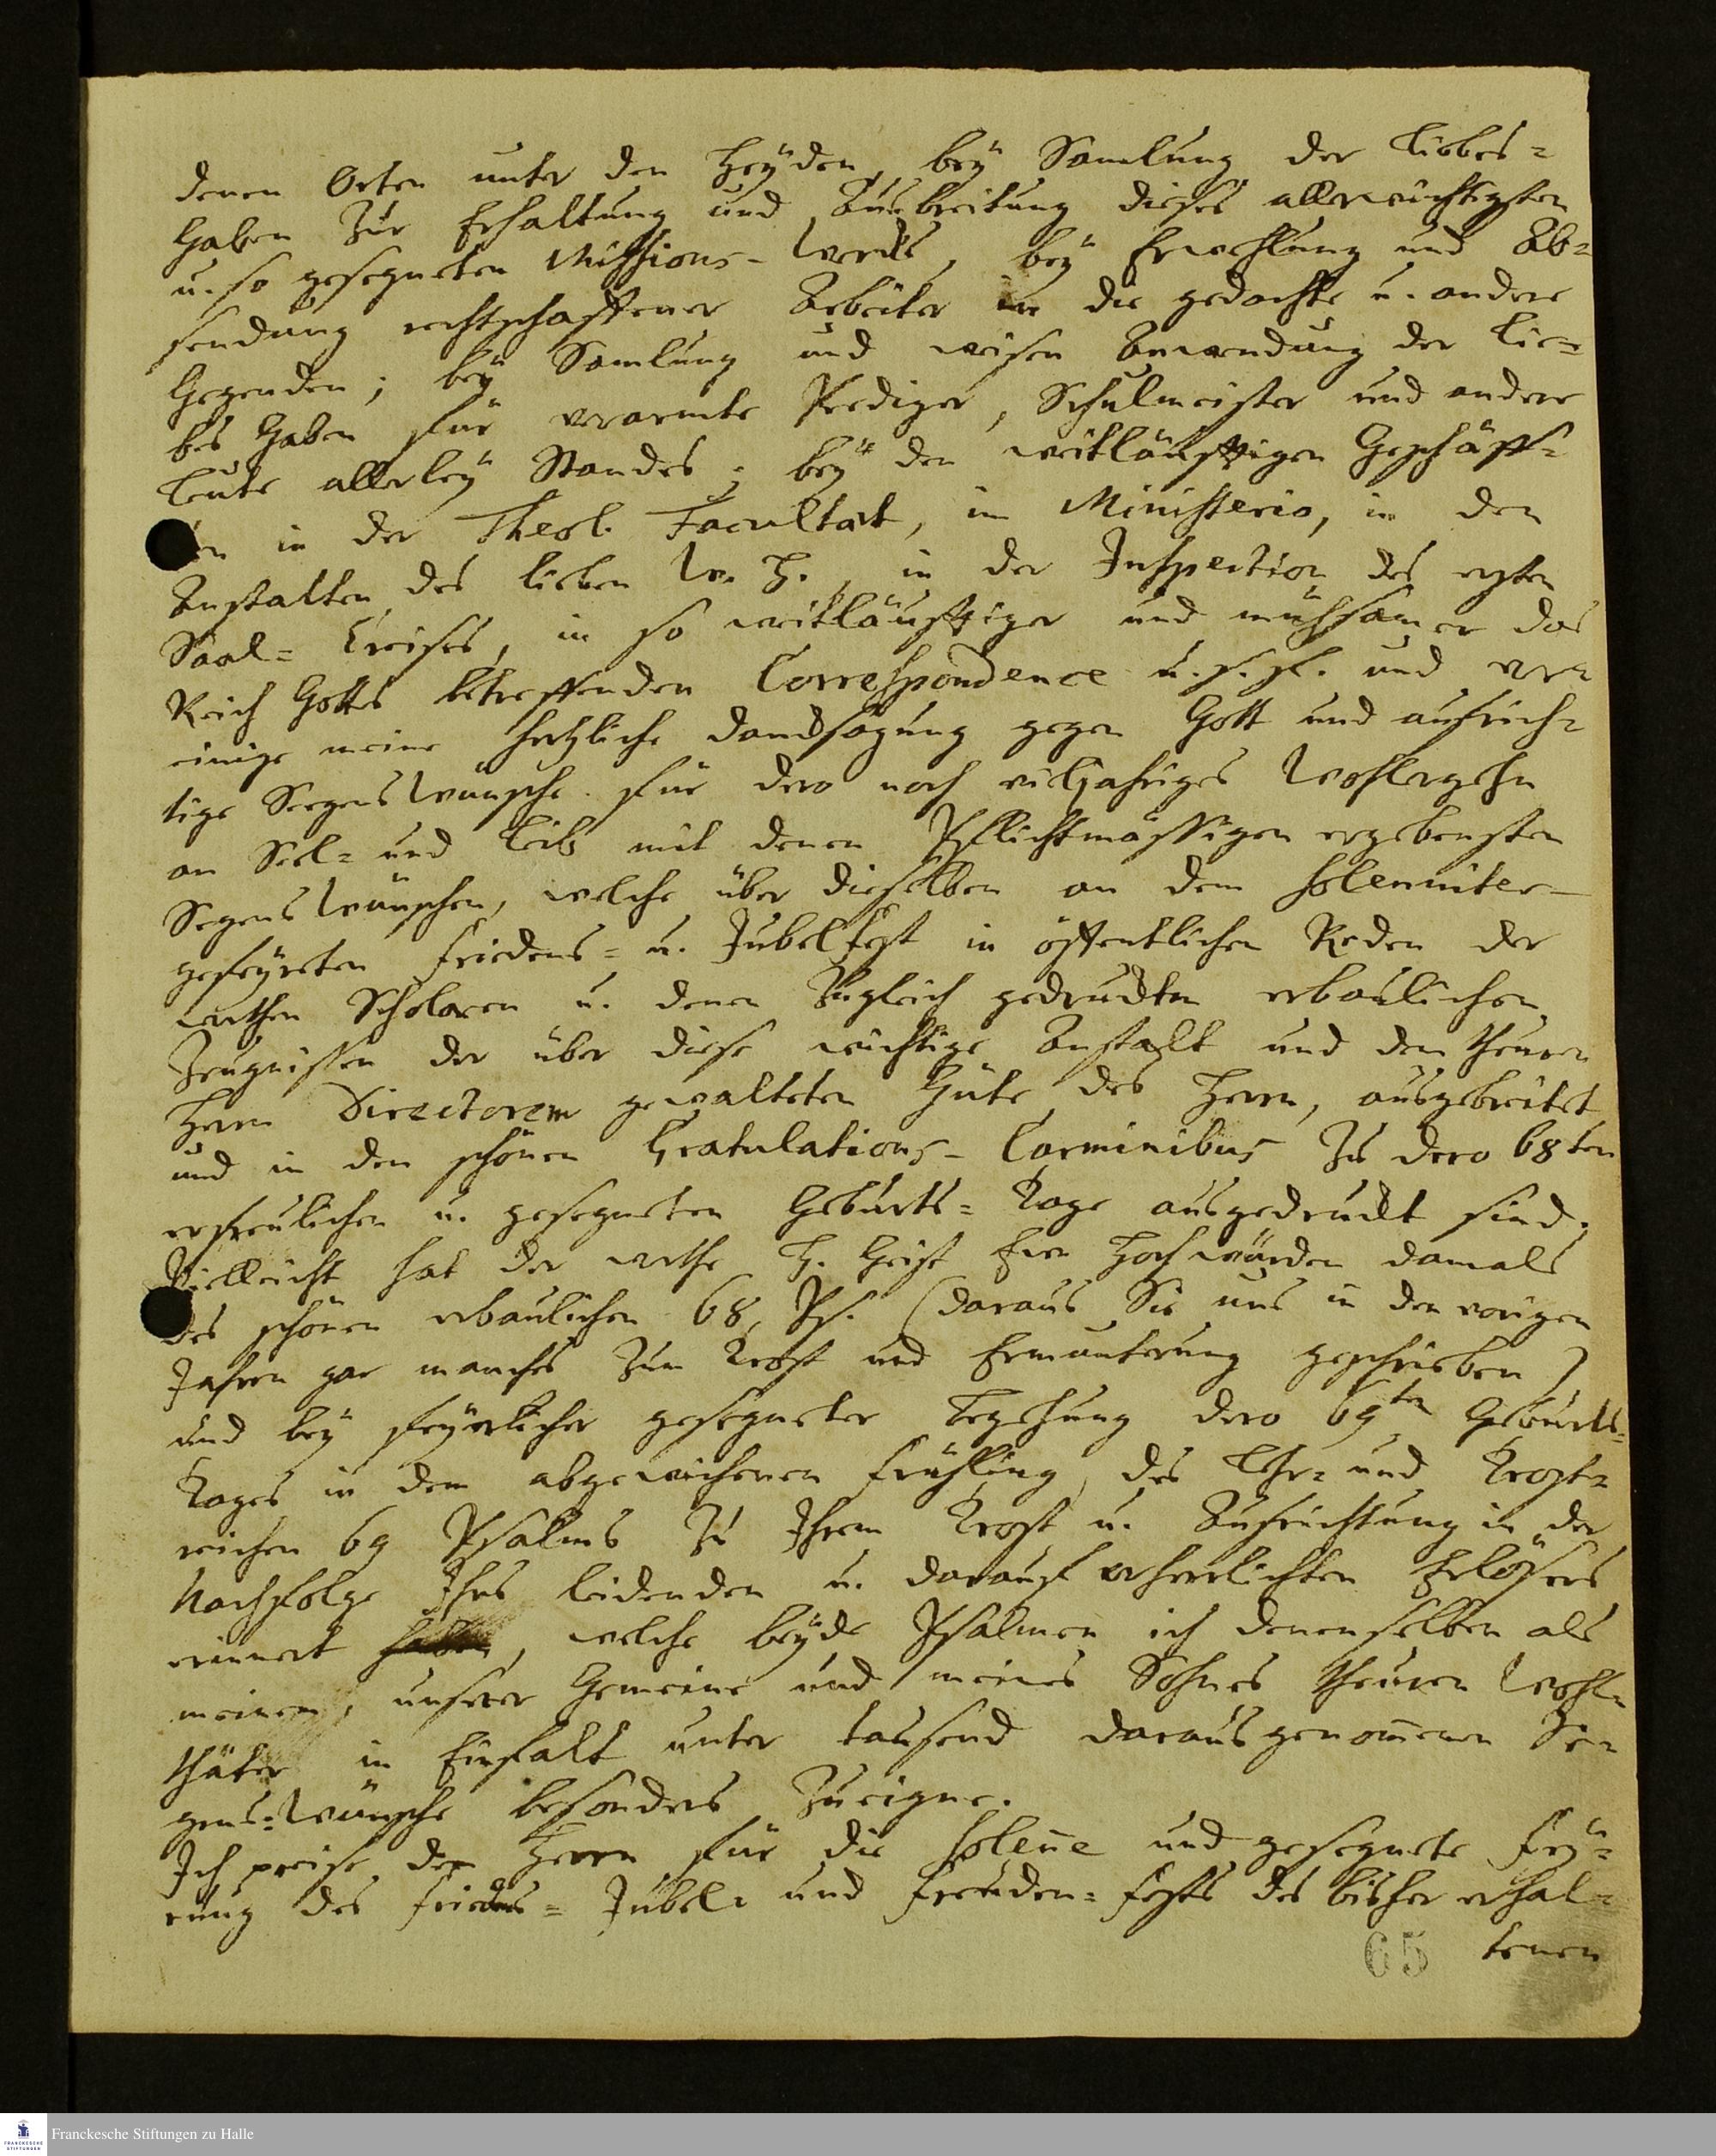 denen Orten unter den Heÿden, beÿ Samlung der Liebes=
Gaben zür Erhaltung und Ausbreitung dieses allerwichtigsten
u. so gesegneten Missions- Wercks, beÿ Erwehlung und Ab=
sendung rechtschaffener Arbeiter in die gedachte u. andere
Gegenden; beÿ Samlung und weisen Anwendung der Lie=
bes Gaben für verarmte Prediger, Schulmeister und andere
Leute allerleÿ Standes; beÿ den weitläufftigen Geschäff=
ten in der Theol. Facultaet, im Ministerio, in den
Anstalten des lieben W. H., in der Inspection des ersten
Saal= Creises, in so weitläufftiger und mühsamer das
Reich Gottes betreffenden Correspondence u. s. f. und ver=
einige meine hertzliche Dancksagung gegen Gott und aufrich=
tige Seegens Wünsche für dero noch vieljähriges Wohlergehn
an Seel= und Leib mit denen Pflichtmässigen ergebensten
Segens Wünschen, welche über dieselben an dem solenniter-
gefeÿreten Friedens= u. Jubelfest in öffentlichen Reden der
werthen Scholaren u. denen Zugleich gedruckten erbaulichen
Zeugnissen der über diese wichtige Anstalt und den theuren
Herrn Directorem gewalteten Güte des Herrn, ausgebreitet
und in den schönen Gratulations- Carminibus zu dero 68ten
erfreulichen u. gesegneten Geburts= Tage ausgedruckt sind.
Vielleicht hat der werthe H. Geist Ew. Hochwürden damals
des schönen erbaulichen 68, Ps. (daraus Sie uns in den vorigen
Jahren gar manches zum Trost und Ermunterung geschrieben)
und beÿ feÿerlicher gesegneter Begehung dero 69ten Geburts=
Tages in dem abgewichenen Frühling, des Lehr= und Trost=
reichen 69 Psalms zu Ihrem Trost u. Aufrichtung in der
Nachfolge Ihres leidenden u. darauf verherrlichten Erlösers
erinnert, welche beÿde Psalmen ich denenselben als
meinem, unserer Gemeine und meines Sohnes theuren Wohl=
thäter in Einfalt unter tausend daraus genom̄enen Se=
gens=Wünsche besonders zueigne.
Ich preise den Herrn für die solen̄e und gesegnete Feÿ=
rung des Friedens= Jubel= und Freuden= Fests des bisher erhal=
tenen
65
Franckesche Stiftungen zu Halle